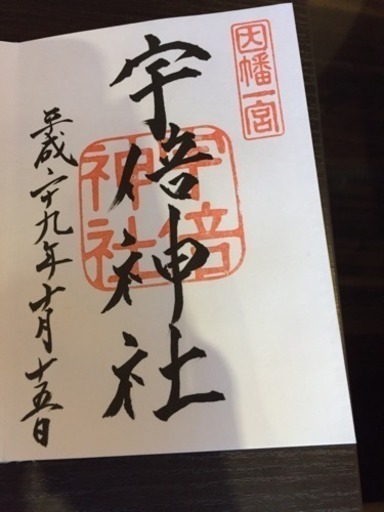 因幡一宮
宇倍神社
宇倍
神社
平成二十九年十月十五日